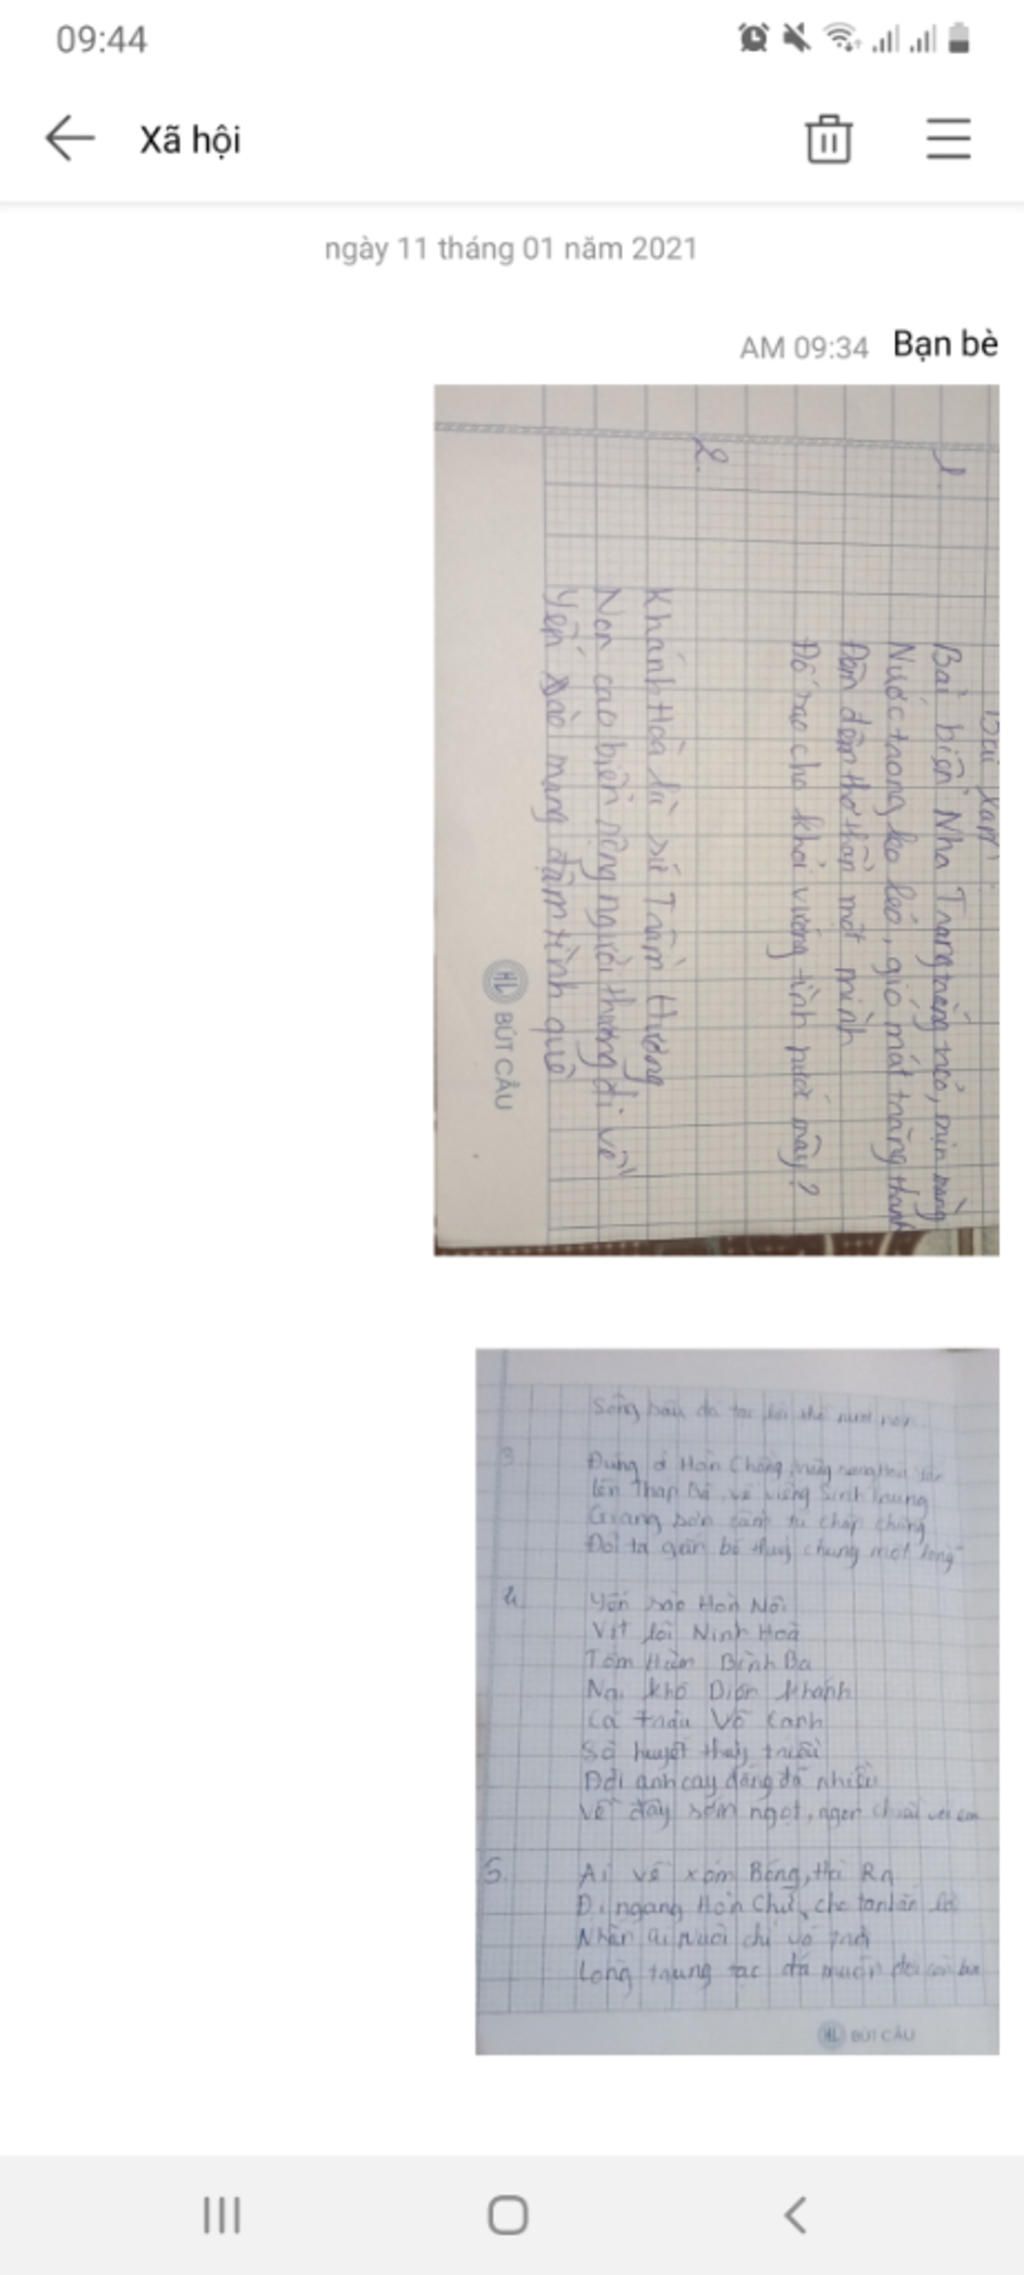 09:44
Xã hội
ngày 11 tháng 01 năm 2021
AM 09:34 Bạn bè
1
Bãi biển Nha Trang trắng mịn
Nước trong leo lẻo, gió mát trăng thanh
Đêm đêm thơ thẩn một mình
Đố sao cho khỏi vướng tình nước mây?
2.
Khánh Hoà là xứ Trầm Hương
Non cao biển rộng người thương đi về
Yến sào mang đậm tình quê
HL BÚT CẦU
Sông sâu đá tạc lời thề nước non
3
Đứng ở Hòn Chồng
lên Tháp Bà, về viếng Sinh Trung
Giang sơn cẩm tú chập chùng
Đôi ta gắn bó thuỷ chung một lòng
4
Yến sào Hòn Nội
Vịt lội Ninh Hoà
Tôm Hùm Bình Ba
Nai khô Diên Khánh
Cá tràu Võ Cạnh
Sò huyết thuỷ triều
Đời anh cay đắng đã nhiều
Về đây sớm ngọt, ngon chiều với em
5.
Ai về xóm Bóng, Hà Ra
Đi ngang Hòn Chữ, cho
Nhắn ai nuôi chí
Lòng trung tạc đá muôn đời
HL BÚT CẦU